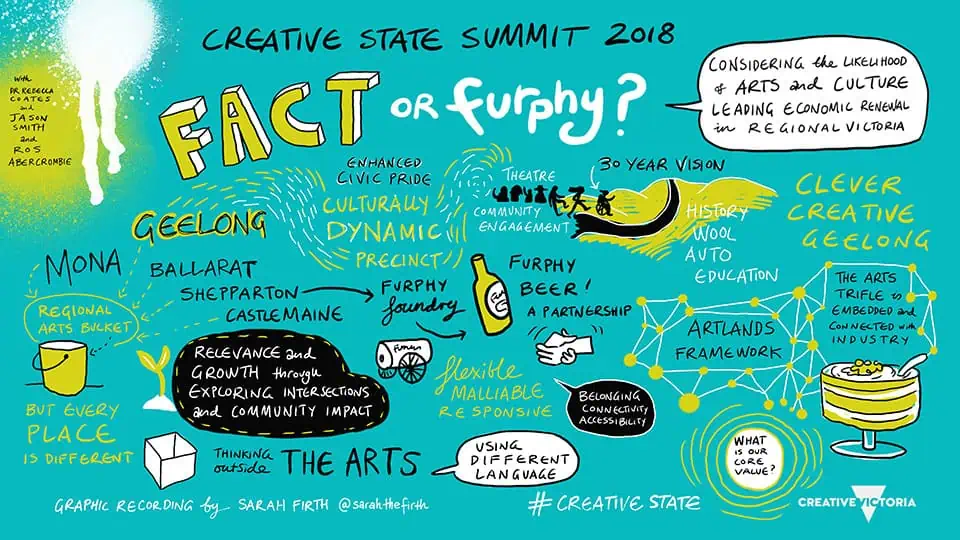 CREATIVE STATE SUMMIT 2018
With
DR REBECCA
COATES
and
JASON
SMITH
and
ROS
ABERCROMBIE
FACT OR furphy?
CONSIDERING the LIKELIHOOD
of ARTS and CULTURE
LEADING ECONOMIC RENEWAL
in REGIONAL VICTORIA
GEELONG
ENHANCED
CIVIC PRIDE
CULTURALLY
DYNAMIC
PRECINCT
THEATRE
COMMUNITY
ENGAGEMENT
30 YEAR VISION
HISTORY
WOOL
AUTO
EDUCATION
CLEVER
CREATIVE
GEELONG
MONA
BALLARAT
SHEPPARTON
CASTLEMAINE
REGIONAL
ARTS BUCKET
BUT EVERY
PLACE
IS DIFFERENT
FURPHY
foundry
FURPHY
BEER!
A PARTNERSHIP
RELEVANCE and
GROWTH through
EXPLORING INTERSECTIONS
and COMMUNITY IMPACT
flexible
MALLIABLE
RESPONSIVE
BELONGING
CONNECTIVITY
ACCESSIBILITY
ARTLANDS
FRAMEWORK
THE ARTS
TRIFLE is
EMBEDDED and
CONNECTED with
INDUSTRY
THINKING
outside
THE ARTS
USING
DIFFERENT
LANGUAGE
WHAT
IS OUR
CORE
VALUE?
GRAPHIC RECORDING by SARAH FIRTH @sarahthefirth
#CREATIVE STATE
CREATIVE VICTORIA